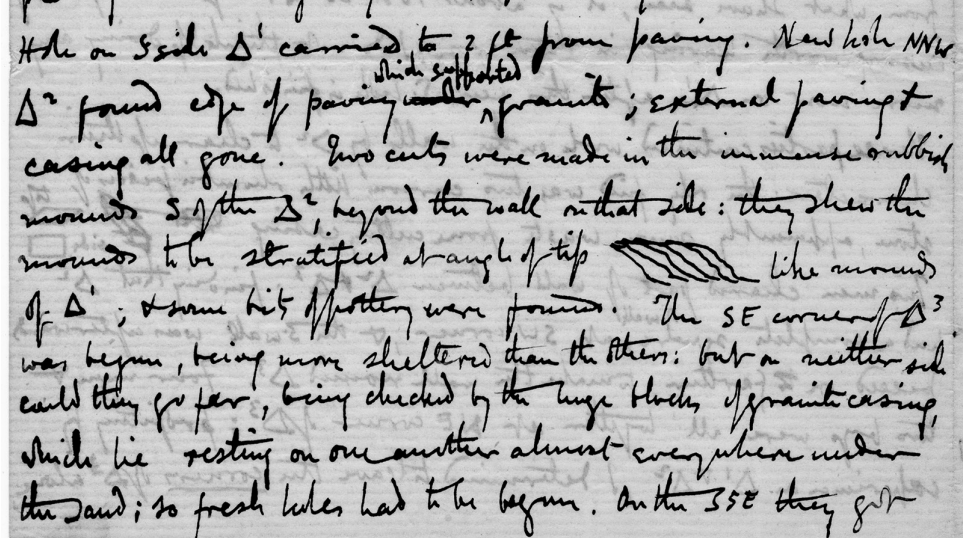 Hole on S side Δ¹ carried to 2 ft from paving. New hole NNW
which supported
Δ² found edge of paving under ^ granite; external paving &
casing all gone. Two cuts were made in the immense rubbish
mounds S of the Δ², beyond the wall on that side: they shew the
mounds to be stratified at angle of tip like mounds
of Δ¹; & some bits of pottery were found. The SE corner of Δ³
was begun, being more sheltered than the others: but on neither side
could they go far, being checked by the huge blocks of granite casing,
which lie resting on one another almost everywhere under
the sand; so fresh holes had to be begun. On the SSE they got